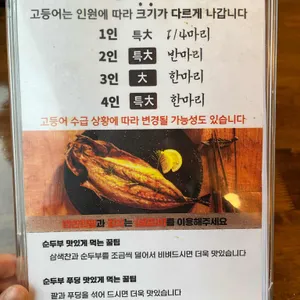 고등어는 인원에 따라 크기가 다르게 나갑니다
1인 特大 1/4마리
2인 特大 반마리
3인 大 한마리
4인 特大 한마리
고등어 수급 상황에 따라 변경될 가능성도 있습니다
를 이용해주세요
순두부 맛있게 먹는 꿀팁
삼색찬과 순두부를 조금씩 덜어서 비벼드시면 더욱 맛있습니다
순두부 푸딩 맛있게 먹는 꿀팁
팥과 푸딩을 섞어 드시면 더욱 맛있습니다